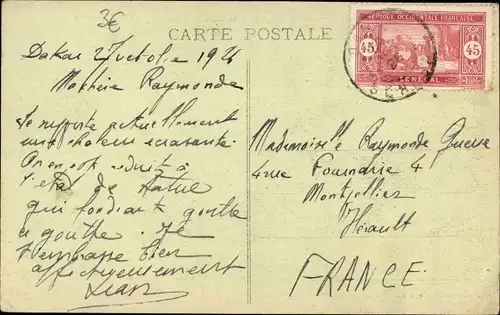 3€
CARTE POSTALE
AFRIQUE OCCIDENTALE FRANÇAISE
45 45
SENEGAL
Dakar 2 octobre 1926
Ma chère Raymonde
Je supporte actuellement
une chaleur écrasante.
On en est réduit à
l'état de statue
qui fondrait goutte
à goutte. Je
t'embrasse bien
affectueusement
Mademoiselle Raymonde
4 rue Fournarie 4
Montpellier
Hérault
FRANCE.